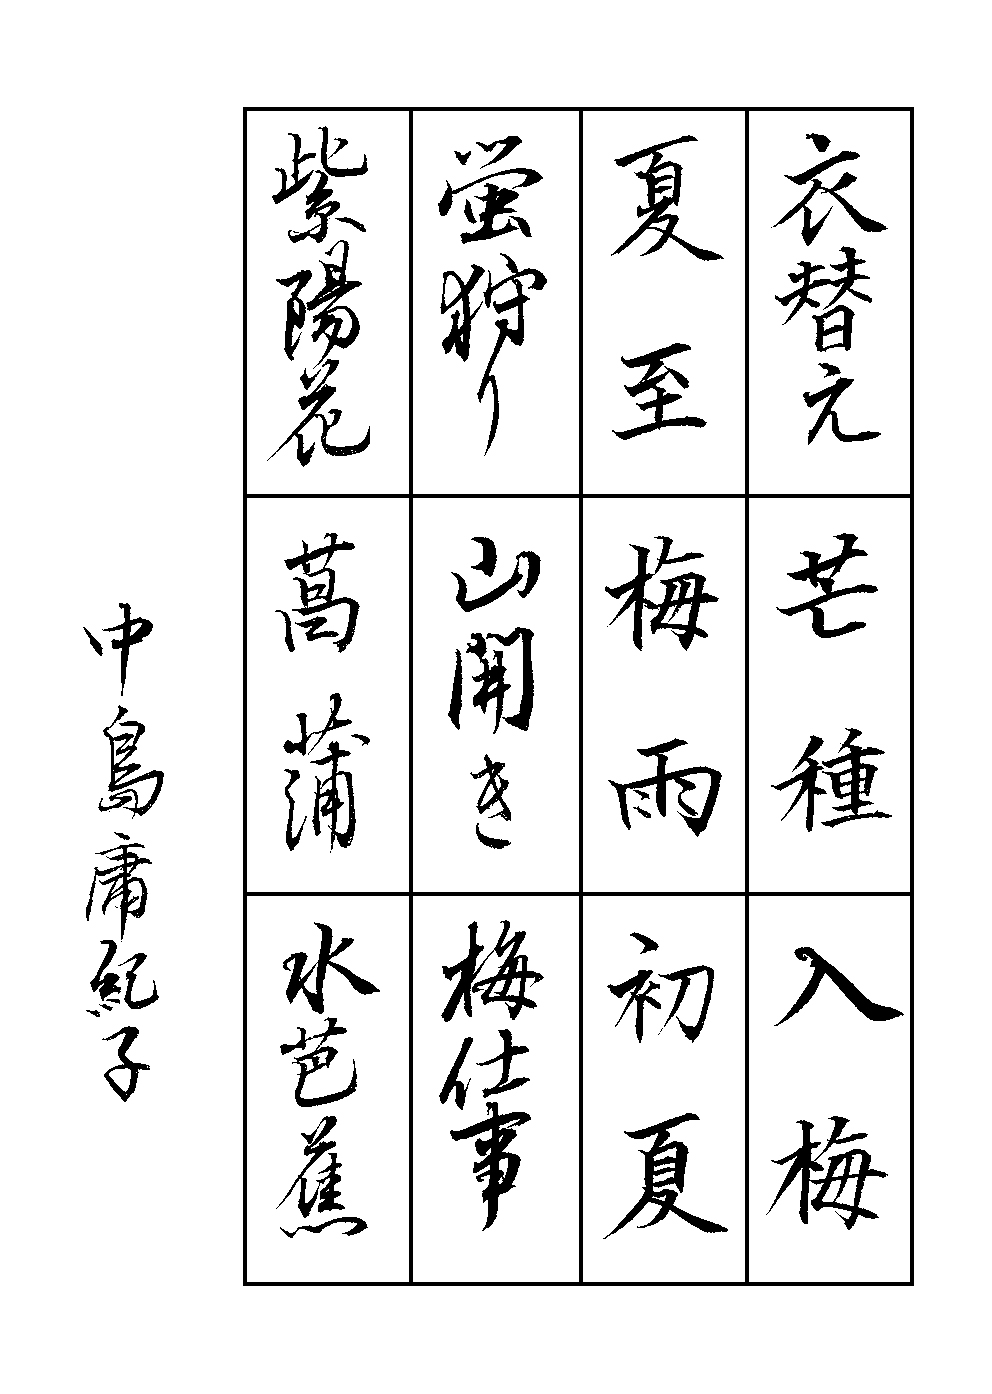 衣替え
芒種
入梅
夏至
梅雨
初夏
蛍狩り
山開き
梅仕事
紫陽花
菖蒲
水芭蕉
中島庸紀子